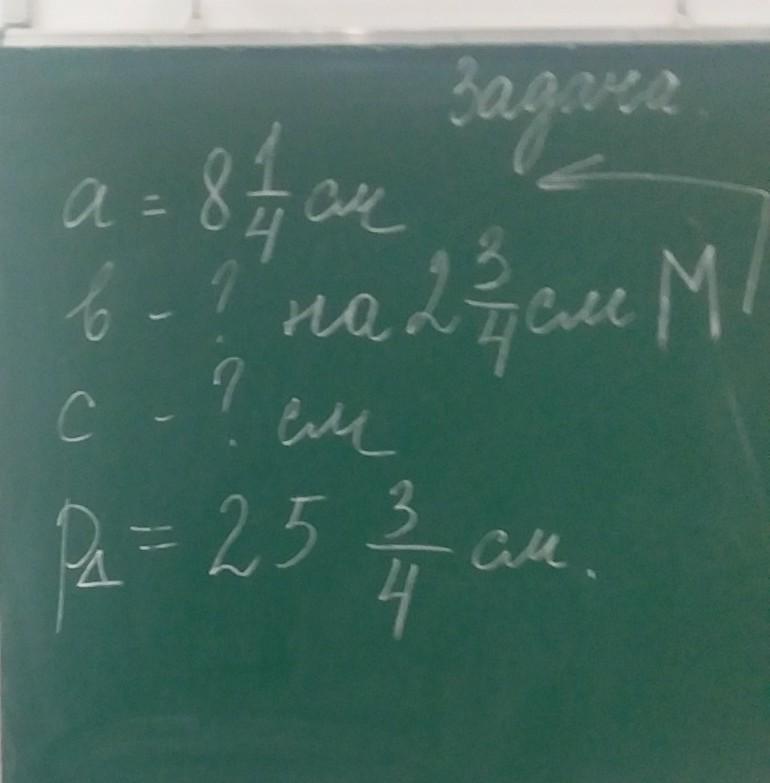 Задача.
a = 8 1/4 см
в - ? на 2 3/4 см М
с - ? см
P△ = 25 3/4 см.